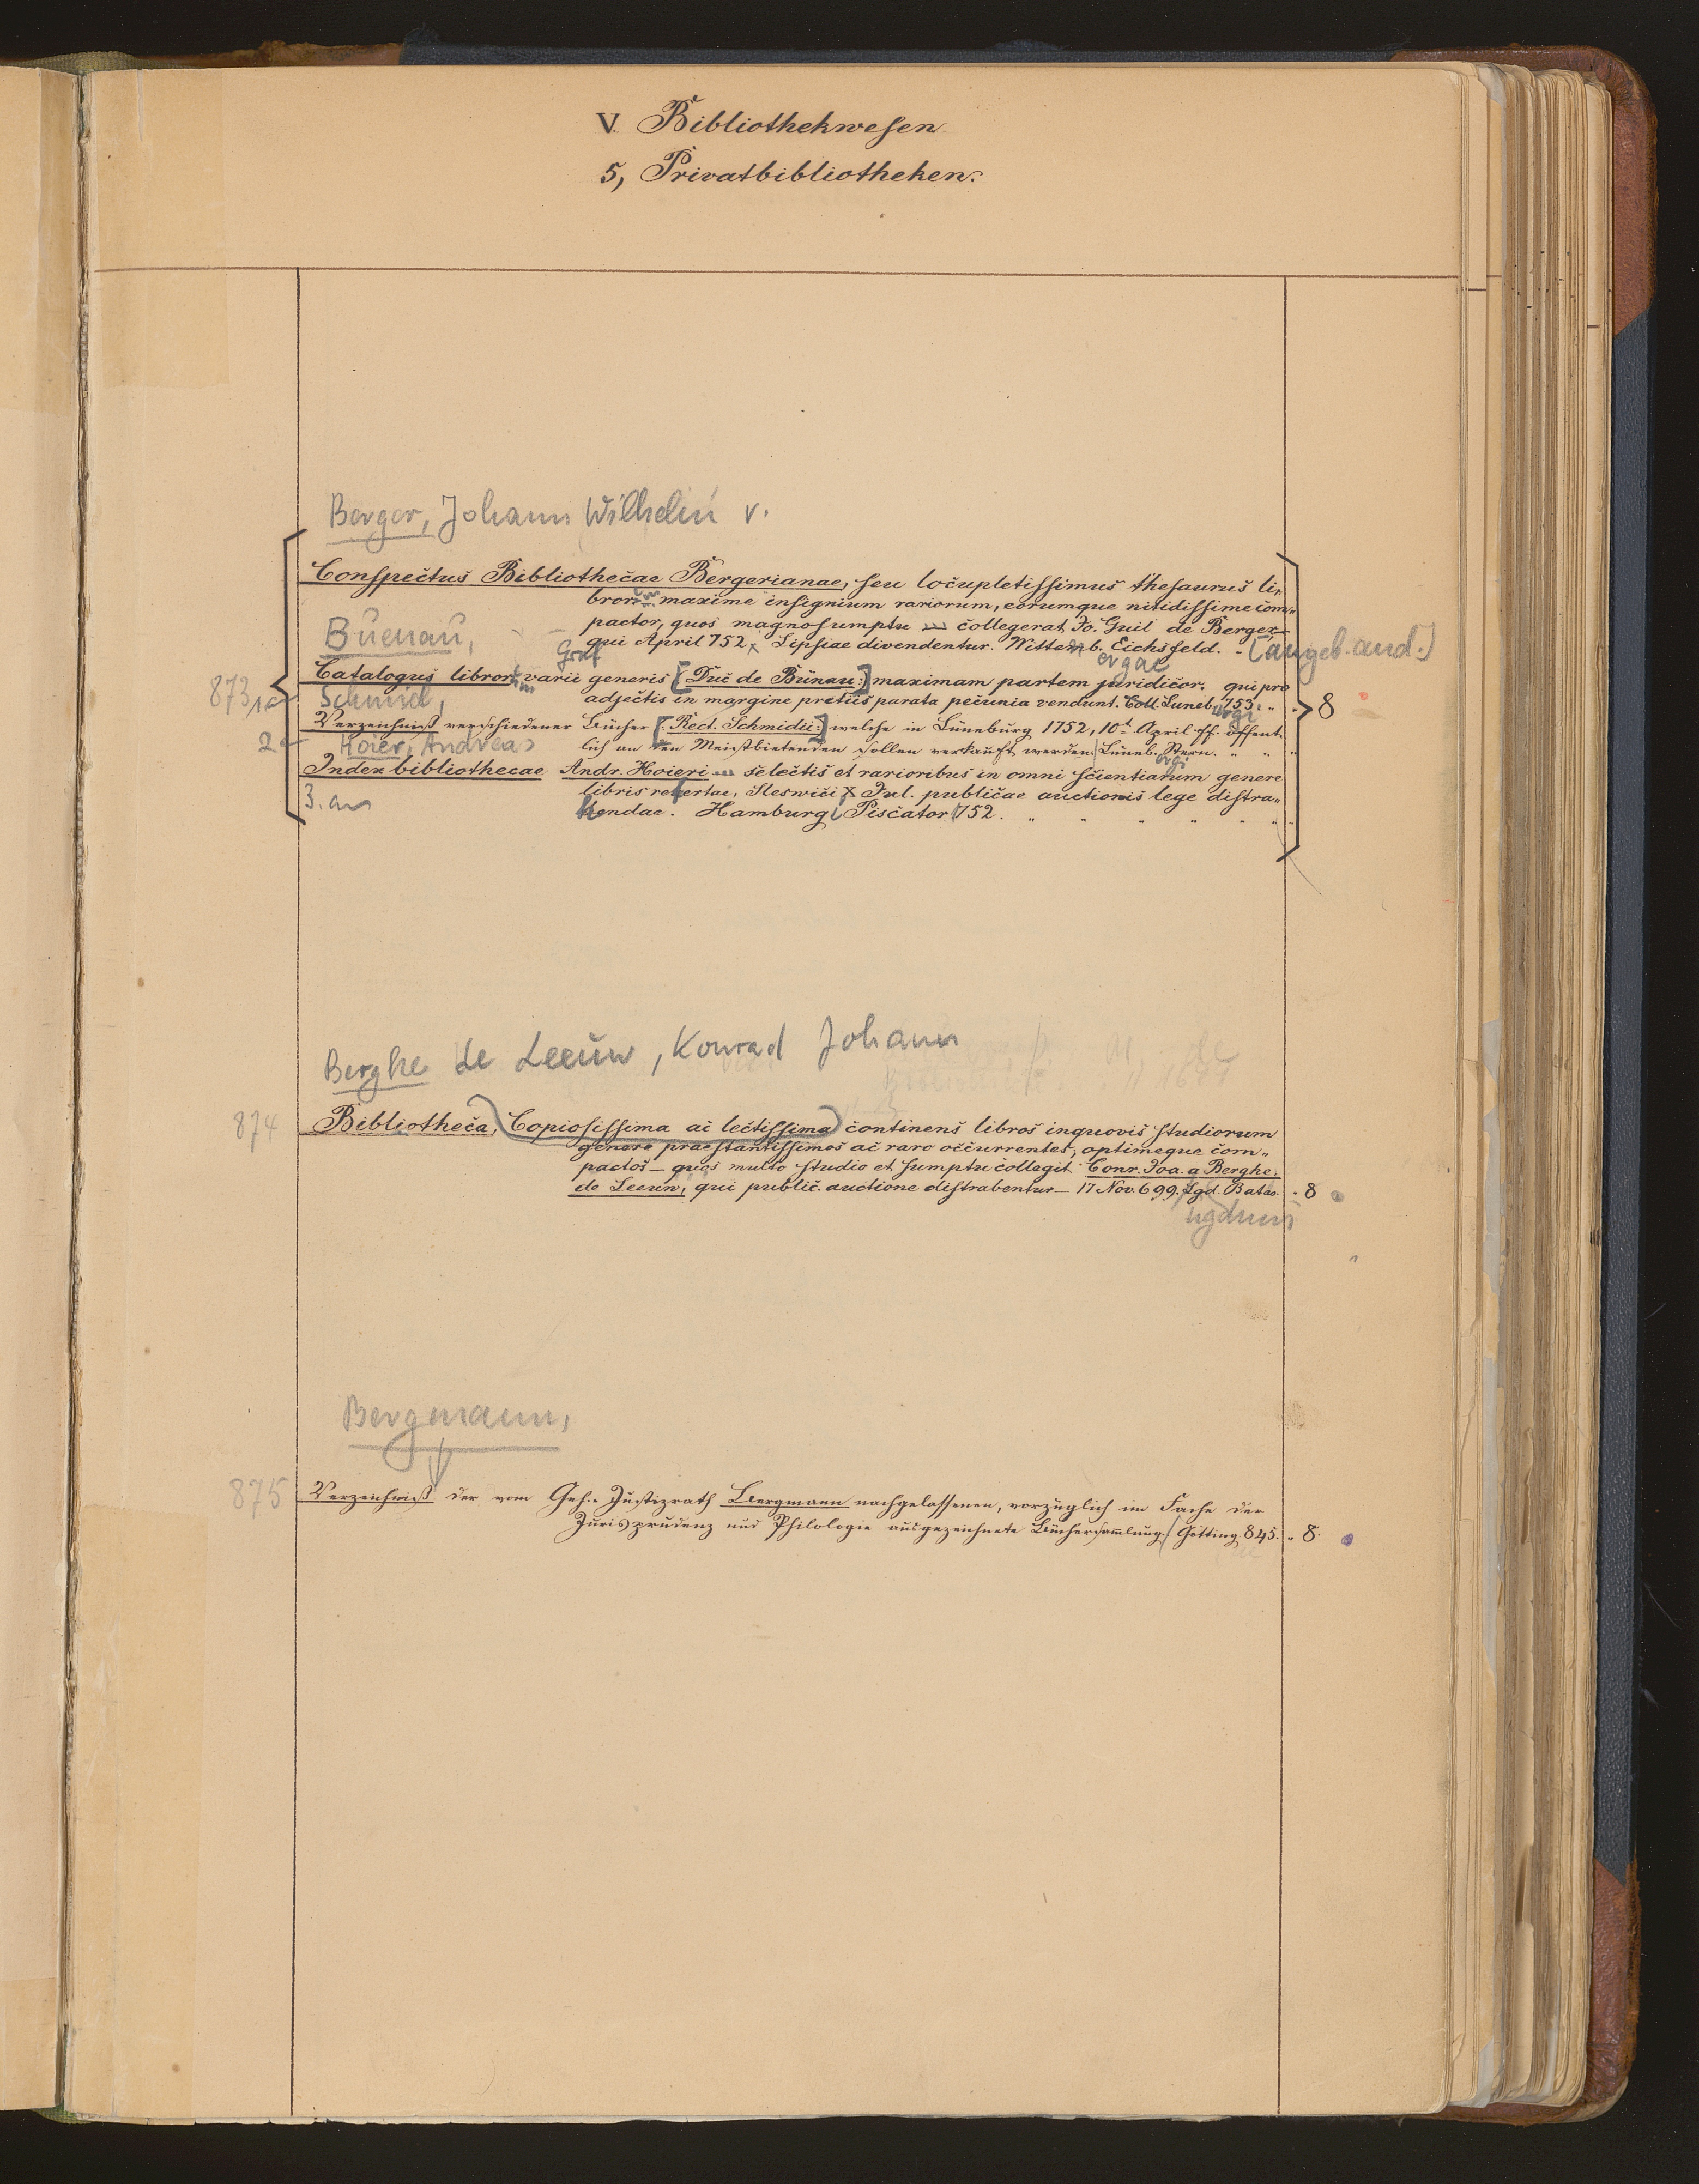 V. Bibliothekwesen
5, Privatbibliotheken.
Berger, Johann Wilhelm v.
Conspectus Bibliothecae Bergerianae, seu locupletissimus thesaurus li„
bror. maxime insignium rariorum, eorumque nitidissime com„
pactor, quos magno sumptu collegerat Jo. Guil de Berger
Buenau,
qui April 752 Lipsiae divendentur. Wittemb. Eichsfeld. „ (angeb. and.)
Graf
ergae
Catalogus libror. varii generis [Duc de Bünau:] maximam partem juridicor. qui pro
873,1a
Schmid,
adjectis in margine pretiis parata pecunia vendunt. Coll. Luneb. 753. „ „ 8
urgi
Verzeichniß verschiedener Bücher [Rect. Schmidii:] welche in Lüneburg 1752, 10t April ff. öffent„
2
Hoier, Andreas
lich an den Meistbietenden sollen verkauft werden. Lüneb. Stern. „ „ „
Index bibliothecae Andr. Hoieri selectis et rarioribus in omni scientiarum genere
3. an
libris refertae, Slesvici X Jul. publicae auctionis lege distra„
hendae. Hamburgi Piscator 752. „ „ „ „ „ „
Berghe de Leeuw, Konrad Johann
874 Bibliotheca, (Copiosissima ac lectissima) continens libros inquovis studiorum
genere praestantissimos ac raro occurrentes, optimeque com„
pactos — quos multo studio et sumptu collegit Conr. Joa. a Berghe.
de Leeuw, qui public. auctione distrabentur — 17 Nov. 699. Lgd. Batav. „ 8
ugduni
Bergmann,
875 Verzeichniß der vom Geh. Justizrath Bergmann nachgelassenen, vorzüglich im Fache der
Jurisprudenz und Philologie ausgezeichnete Büchersammlung. Götting. 845. „ 8.